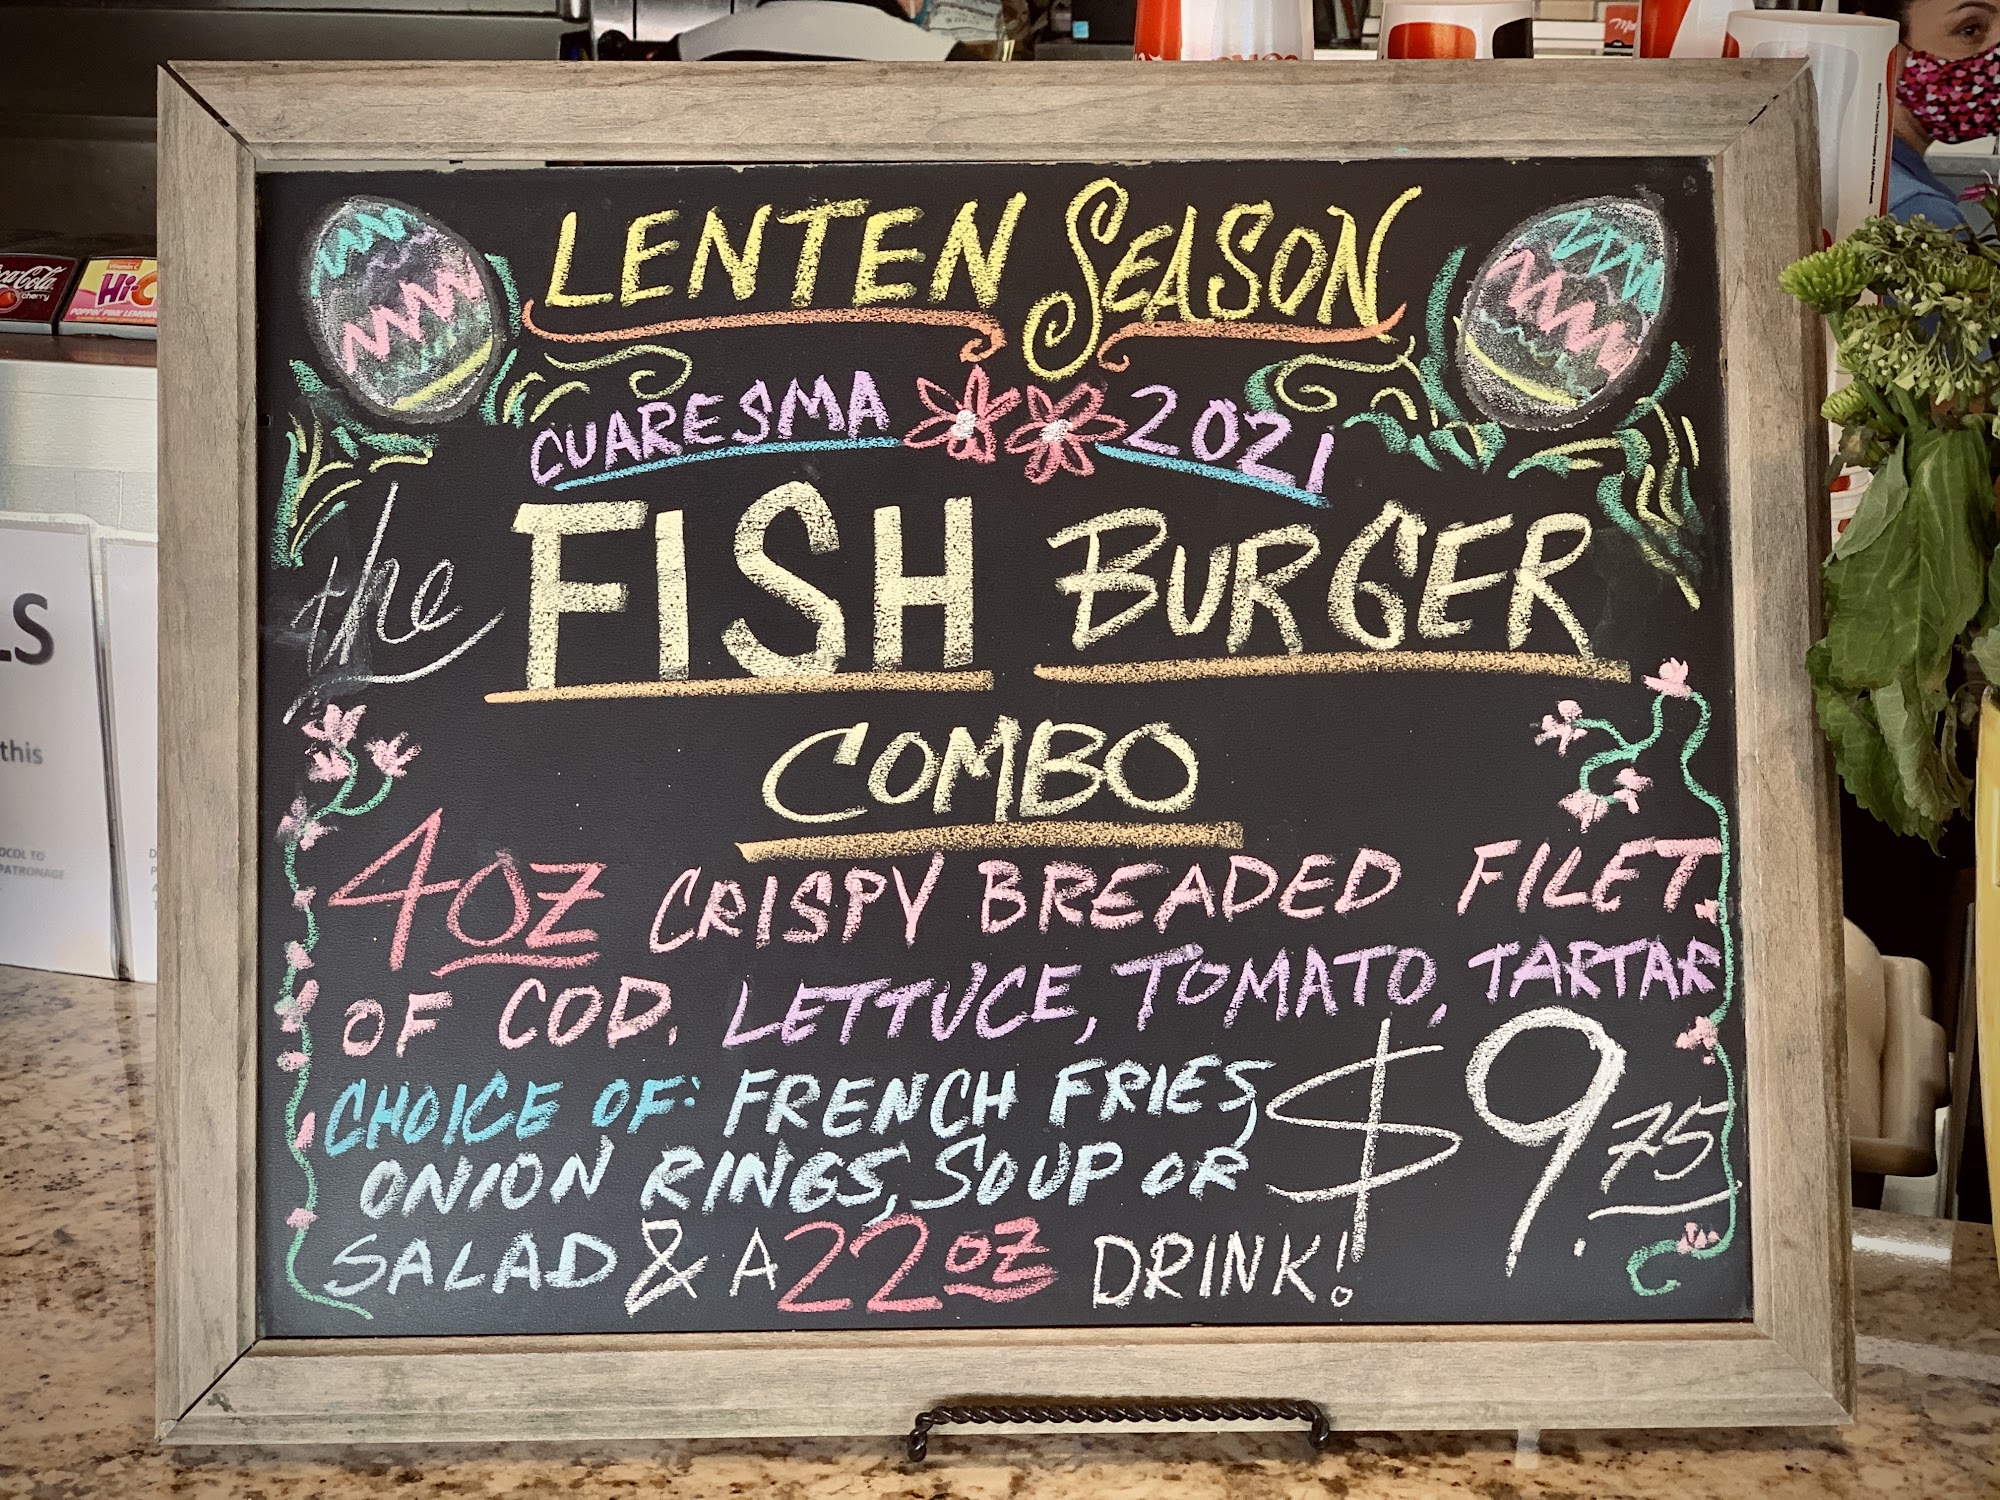 LENTEN SEASON
CUARESMA 2021
the FISH BURGER
COMBO
4oz CRISPY BREADED FILET
OF COD. LETTUCE, TOMATO, TARTAR
CHOICE OF: FRENCH FRIES,
ONION RINGS, SOUP OR
SALAD & A 22oz DRINK!
$9.75
Coca-Cola
cherry
Hi-C
POPPIN' PINK LEMONADE
LS
this
OCOL TO
PATRONAGE